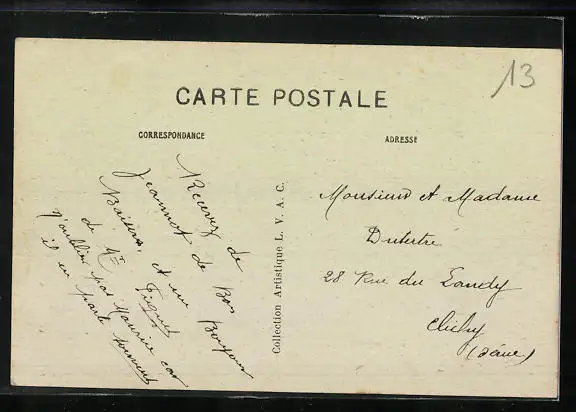 13
CARTE POSTALE
CORRESPONDANCE
ADRESSE
Recevez de
Jeannot de Bos
Baisers, et un Bonjour
de Mr
n'oubliez pas Maurice car
il en parle souvent
Collection Artistique L. V. A. C.
Monsieur et Madame
Dutertre
28 Rue du Landy
Clichy
(Seine)